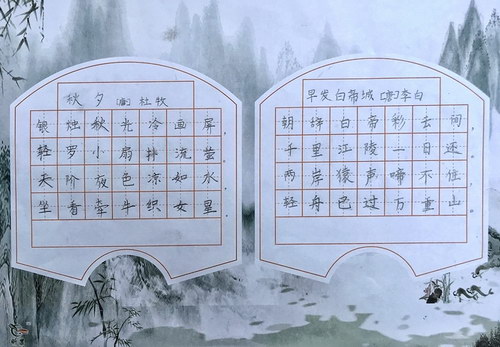 秋夕 [唐] 杜牧
银烛秋光冷画屏,
轻罗小扇扑流萤。
天阶夜色凉如水,
坐看牵牛织女星。
早发白帝城 [唐] 李白
朝辞白帝彩云间,
千里江陵一日还。
两岸猿声啼不住,
轻舟已过万重山。